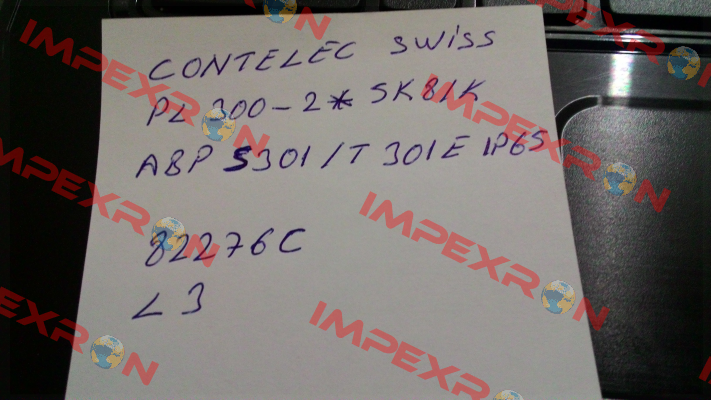 CONTELEC SWISS
PL300-2* 5K81K
ABP S301/T301E IP65
82276C
L3
IMPEXRON
IMPEXRON
IMPEXRON
IMPEXRON
IMPEXRON
IMPEXRON